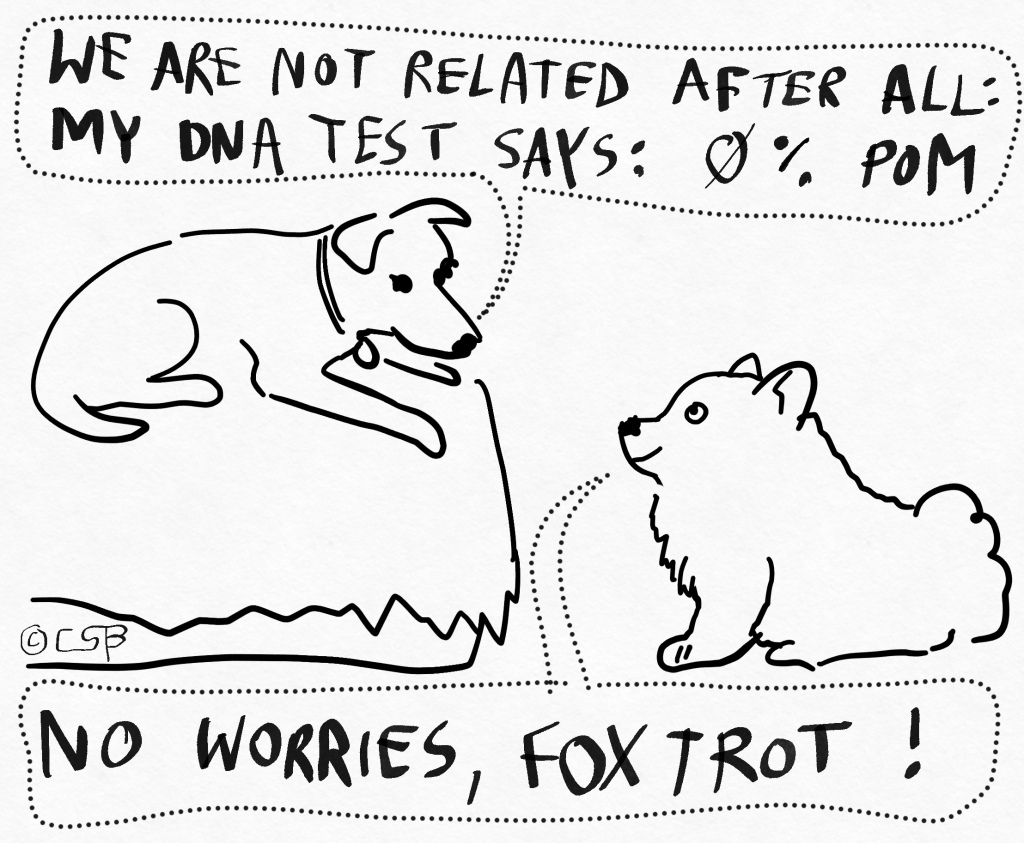 WE ARE NOT RELATED AFTER ALL:
MY DNA TEST SAYS: 0% POM
© CSB
NO WORRIES, FOXTROT!